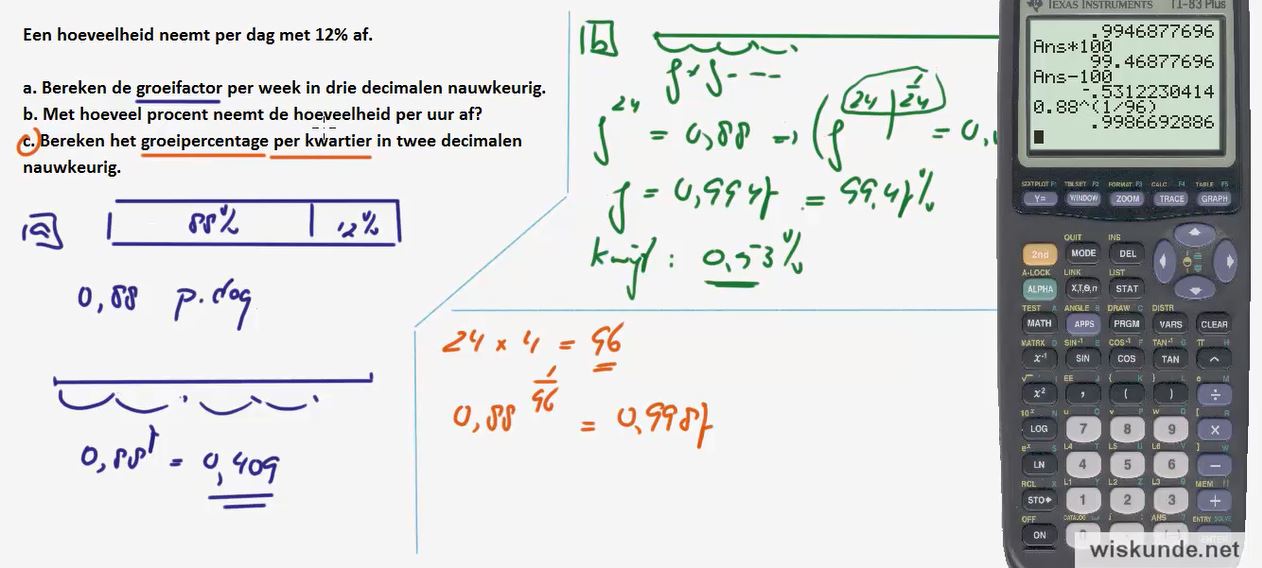 Een hoeveelheid neemt per dag met 12% af.
a. Bereken de groeifactor per week in drie decimalen nauwkeurig.
b. Met hoeveel procent neemt de hoeveelheid per uur af?
c. Bereken het groeipercentage per kwartier in twee decimalen
nauwkeurig.
a
88% 12%
0,88 p. dag
0,88^7 = 0,409
b
g × g . ---
g^24 = 0,88 => (g^24)^1/24 = 0,
g = 0,9947 = 99,47%
kwijt : 0,53%
24 × 4 = 96
0,88^1/96 = 0,9987
TEXAS INSTRUMENTS TI-83 Plus
.9946877696
Ans*100
99.46877696
Ans-100
-.5312230414
0.88^(1/96)
.9986692886
STATPLOT F1 TBLSET F2 FORMAT F3 CALC F4 TABLE F5
Y= WINDOW ZOOM TRACE GRAPH
QUIT INS
2nd MODE DEL
A-LOCK LINK LIST
ALPHA X,T,θ,n STAT
TEST A ANGLE B DRAW C DISTR
MATH APPS PRGM VARS CLEAR
MATRX D SIN⁻¹ E COS⁻¹ F TAN⁻¹ G π H
x⁻¹ SIN COS TAN ^
√ I EE J { K } L e M
x² , ( ) ÷
10ˣ N u O v P w Q [ R
LOG 7 8 9 ×
eˣ S L4 T L5 U L6 V ] W
LN 4 5 6 −
RCL X L1 Y L2 Z L3 θ MEM "
STO▸ 1 2 3 +
OFF CATALOG i ANS ? ENTRY SOLVE
ON
wiskunde.net